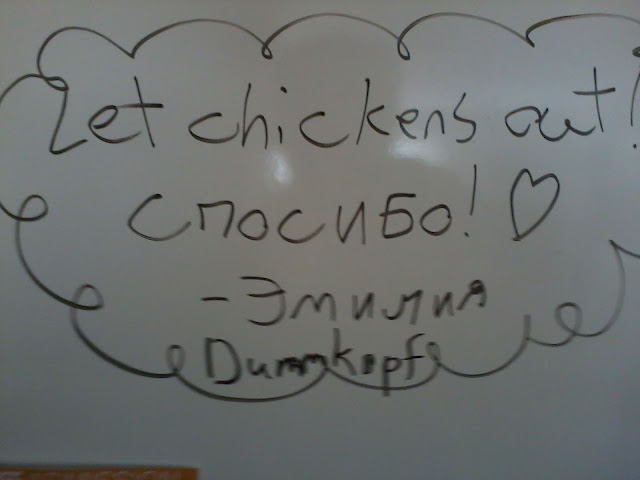 Let chickens out!
спосиБо! ♡
-Эмилия
Dummkopf